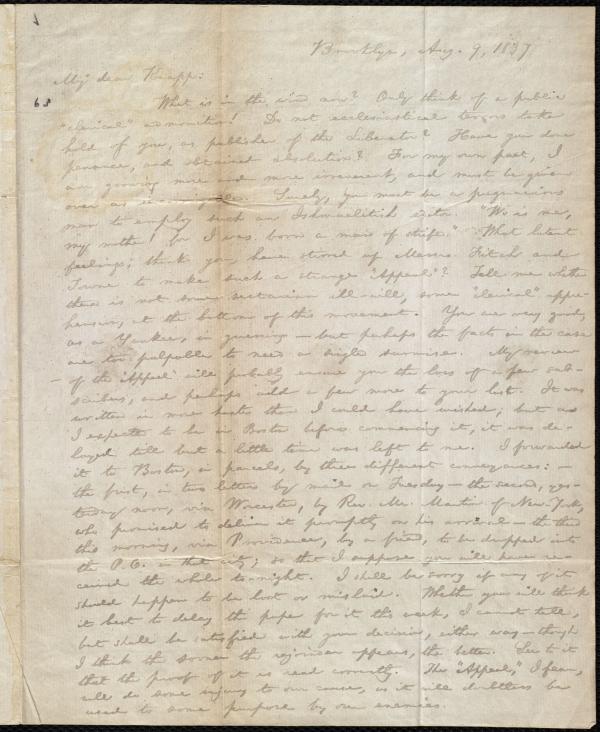 Brooklyn, Aug. 9, 1837
My dear Knapp:
68
What is in the wind now? Only think of a public
"clerical" admonition! Do not ecclesiastical terrors take
hold of you, as publisher of the Liberator? Have you done
penance, and obtained absolution? For my own part, I
am growing more and more irreverent, and must be given
over as Surely, you must be a pugnacious
man to employ such an Ishmaelitish editor. "Wo is me,
my mother! for I was born a man of strife." What latent
feelings, think you, have stirred up Messrs. Fitch and
Towne to make such a strange "Appeal"? Tell me whether
there is not some sectarian ill-will, some "clerical" appre-
hension, at the bottom of this movement. You are very good,
as a Yankee, in guessing — but perhaps the facts in the case
are too palpable to need a single surmise. My review
of the "Appeal" will probably ensure you the loss of a few sub-
scribers, and perhaps add a few more to your list. It was
written in more haste than I could have wished; but as
I expected to be in Boston before commencing it, it was de-
layed till but a little time was left to me. I forwarded
it to Boston, in parcels, by three different conveyances: —
the first, in two letters by mail on Tuesday — the second, yes-
terday noon, via Worcester, by Rev. Mr. Martin of New-York,
who promised to deliver it promptly on his arrival — the third
this morning, via Providence, by a friend, to be dropped into
the P.O. in that city; so that I suppose you will have re-
ceived the whole to-night. I shall be sorry if any of it
should happen to be lost or mislaid. Whether you will think
it best to delay the paper for it this week, I cannot tell,
but shall be satisfied with your decision, either way — though
I think the sooner the rejoinder appears, the better. See to it
that the proof of it is read correctly. The "Appeal," I fear,
will do some injury to our cause, as it will doubtless be
used to some purpose by our enemies.